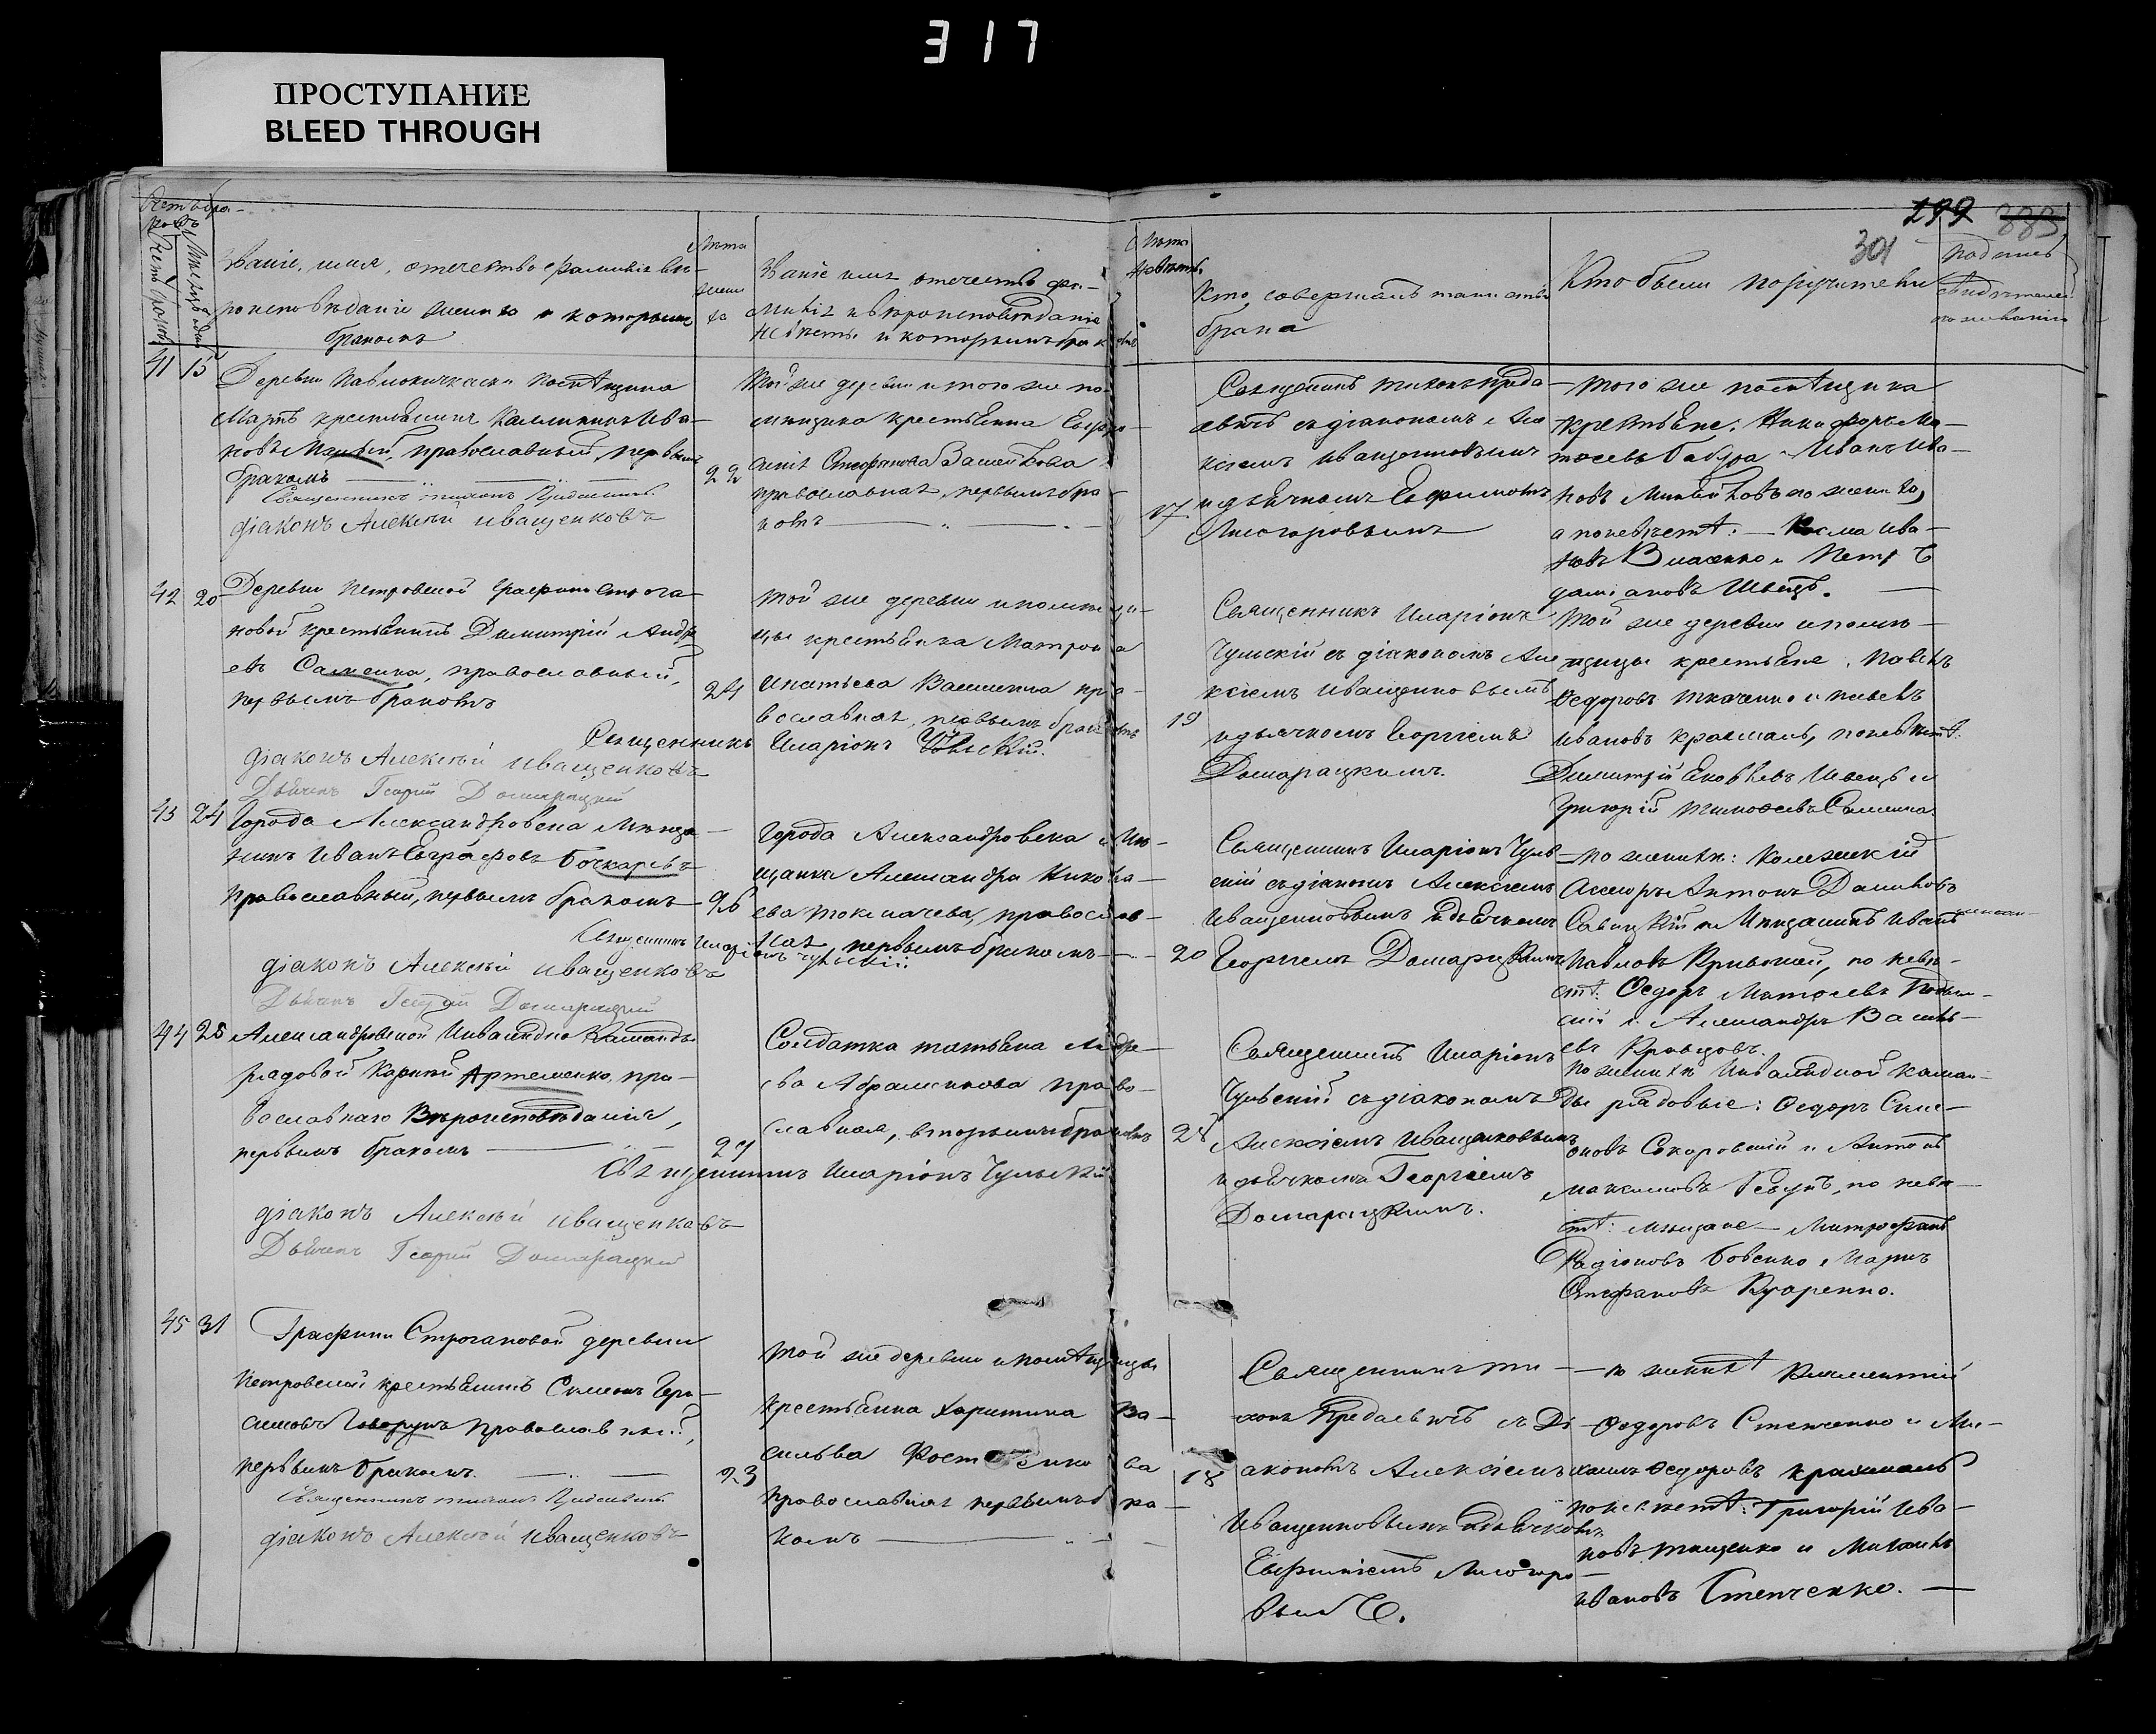 317
ПРОСТУПАНИЕ
BLEED THROUGH
299
301
Званіе, имя, отечество фамилія вѣ-
роисповѣданіе жениха и которымъ
бракомъ
Званіе имя, отечество фа-
милія и вѣроисповѣданіе
невѣсты и которымъ браком
Кто совершалъ таинство
брака
Кто были поручители
41 15
Деревни
крестьянинъ Калиникъ Ива-
новъ Малый, православный, первымъ
бракомъ
Священникъ Тихонъ
діаконъ Алексѣй Иващенковъ
22
Той же деревни и того же по-
мѣщика крестьянка Евфро-
синія Стефанова
православная, первымъ бра-
комъ
17
Священникъ Тихонъ Преда-
евичъ съ діакономъ Але-
ксіемъ Иващенковымъ
и дьячкомъ Евфиміемъ
Лисогоровымъ
того же помѣщика
крестьяне: Никифоръ Ма-
тѳеевъ Бабура и Иванъ Ива-
новъ по женихѣ,
а по невѣстѣ: Косма Ива-
новъ Власенко и Петръ
Даміановъ Швецъ.
42 20
Деревни Петровской Графини Строга-
новой крестьянинъ Димитрій Андре-
евъ Саленка, православный,
первымъ бракомъ
24
Священникъ Иларіонъ Чульскій.
діаконъ Алексѣй Иващенковъ
Дьячекъ Георгій Домарацкій
той же деревни и помѣщи-
цы крестьянка Матрона
Игнатьева пра-
вославная, первымъ бракомъ
19
Священникъ Иларіонъ
Чульскій съ діакономъ Але-
ксіемъ Иващенковымъ
и дьячкомъ Георгіемъ
Домарацкимъ.
Той же деревни и помѣ-
щицы крестьяне, Павелъ
Ѳедоровъ Ткаченко и Павелъ
Ивановъ Крамаль, по невѣстѣ:
Димитрій Яковлевъ Швецъ и
Григорій Тимоѳеевъ Саленка.
43 24
Города Александровска мѣща-
нинъ Иванъ Евграфовъ Бочкаревъ
православный, первымъ бракомъ
26
Священникъ Иларіонъ Чульскій
діаконъ Алексѣй Иващенковъ
Дьячекъ Георгій Домарацкій
Города Александровска мѣ-
щанка Александра Никола-
ева Токмачева, православ-
ная, первымъ бракомъ
20
Священникъ Иларіонъ Чуль-
скій съ діакономъ Алексіемъ
Иващенковымъ и дьячкомъ
Георгіемъ Домарацкимъ
по женихѣ: Коллежскій
Асессоръ Антонъ Даниловъ
Савицкій и Мѣщанинъ Иванъ
Павловъ Кривокой, по невѣ-
стѣ: Ѳедоръ Матѳеевъ
и Александръ Василь-
евъ Кравцовъ.
44 28
Александровской Инвалидной Команды
рядовой Карпій Артеменко, пра-
вославнаго Вѣроисповѣданія,
первымъ бракомъ
27
Священникъ Иларіонъ Чульскій
діаконъ Алексѣй Иващенковъ
Дьячекъ Георгій Домарацкій
Солдатка Татьяна Андре-
ева Абраменкова право-
славная, вторымъ бракомъ
28
Священникъ Иларіонъ
Чульскій съ діакономъ
Алексіемъ Иващенковымъ
и дьячкомъ Георгіемъ
Домарацкимъ.
по женихѣ Инвалидной коман-
ды рядовые: Ѳедоръ Симе-
оновъ Сикоровскій и Антонъ
Максимовъ по невѣ-
стѣ: мѣщане Митрофанъ
Радіоновъ Бовенко, Маркъ
Стефановъ
45 31
Графини Строгановой деревни
Петровской крестьянинъ Симеонъ Гера-
симовъ Говорунъ православный,
первымъ бракомъ
Священникъ Тихонъ
діаконъ Алексѣй Иващенковъ
23
Той же деревни и помѣщицы
крестьянка Харитина Ва-
сильева
православная первымъ бра-
комъ
18
Священникъ Ти-
хонъ Предаевичъ съ Ді-
акономъ Алексіемъ
Иващенковымъ и дьячкомъ
Евфиміемъ Лисогоро-
вымъ.
по женихѣ Климентій
Ѳедоровъ Степченко и Ми-
хаилъ Ѳедоровъ Крамаль
по невѣстѣ: Григорій Ива-
новъ Тищенко и Михаилъ
Ивановъ Степченко.